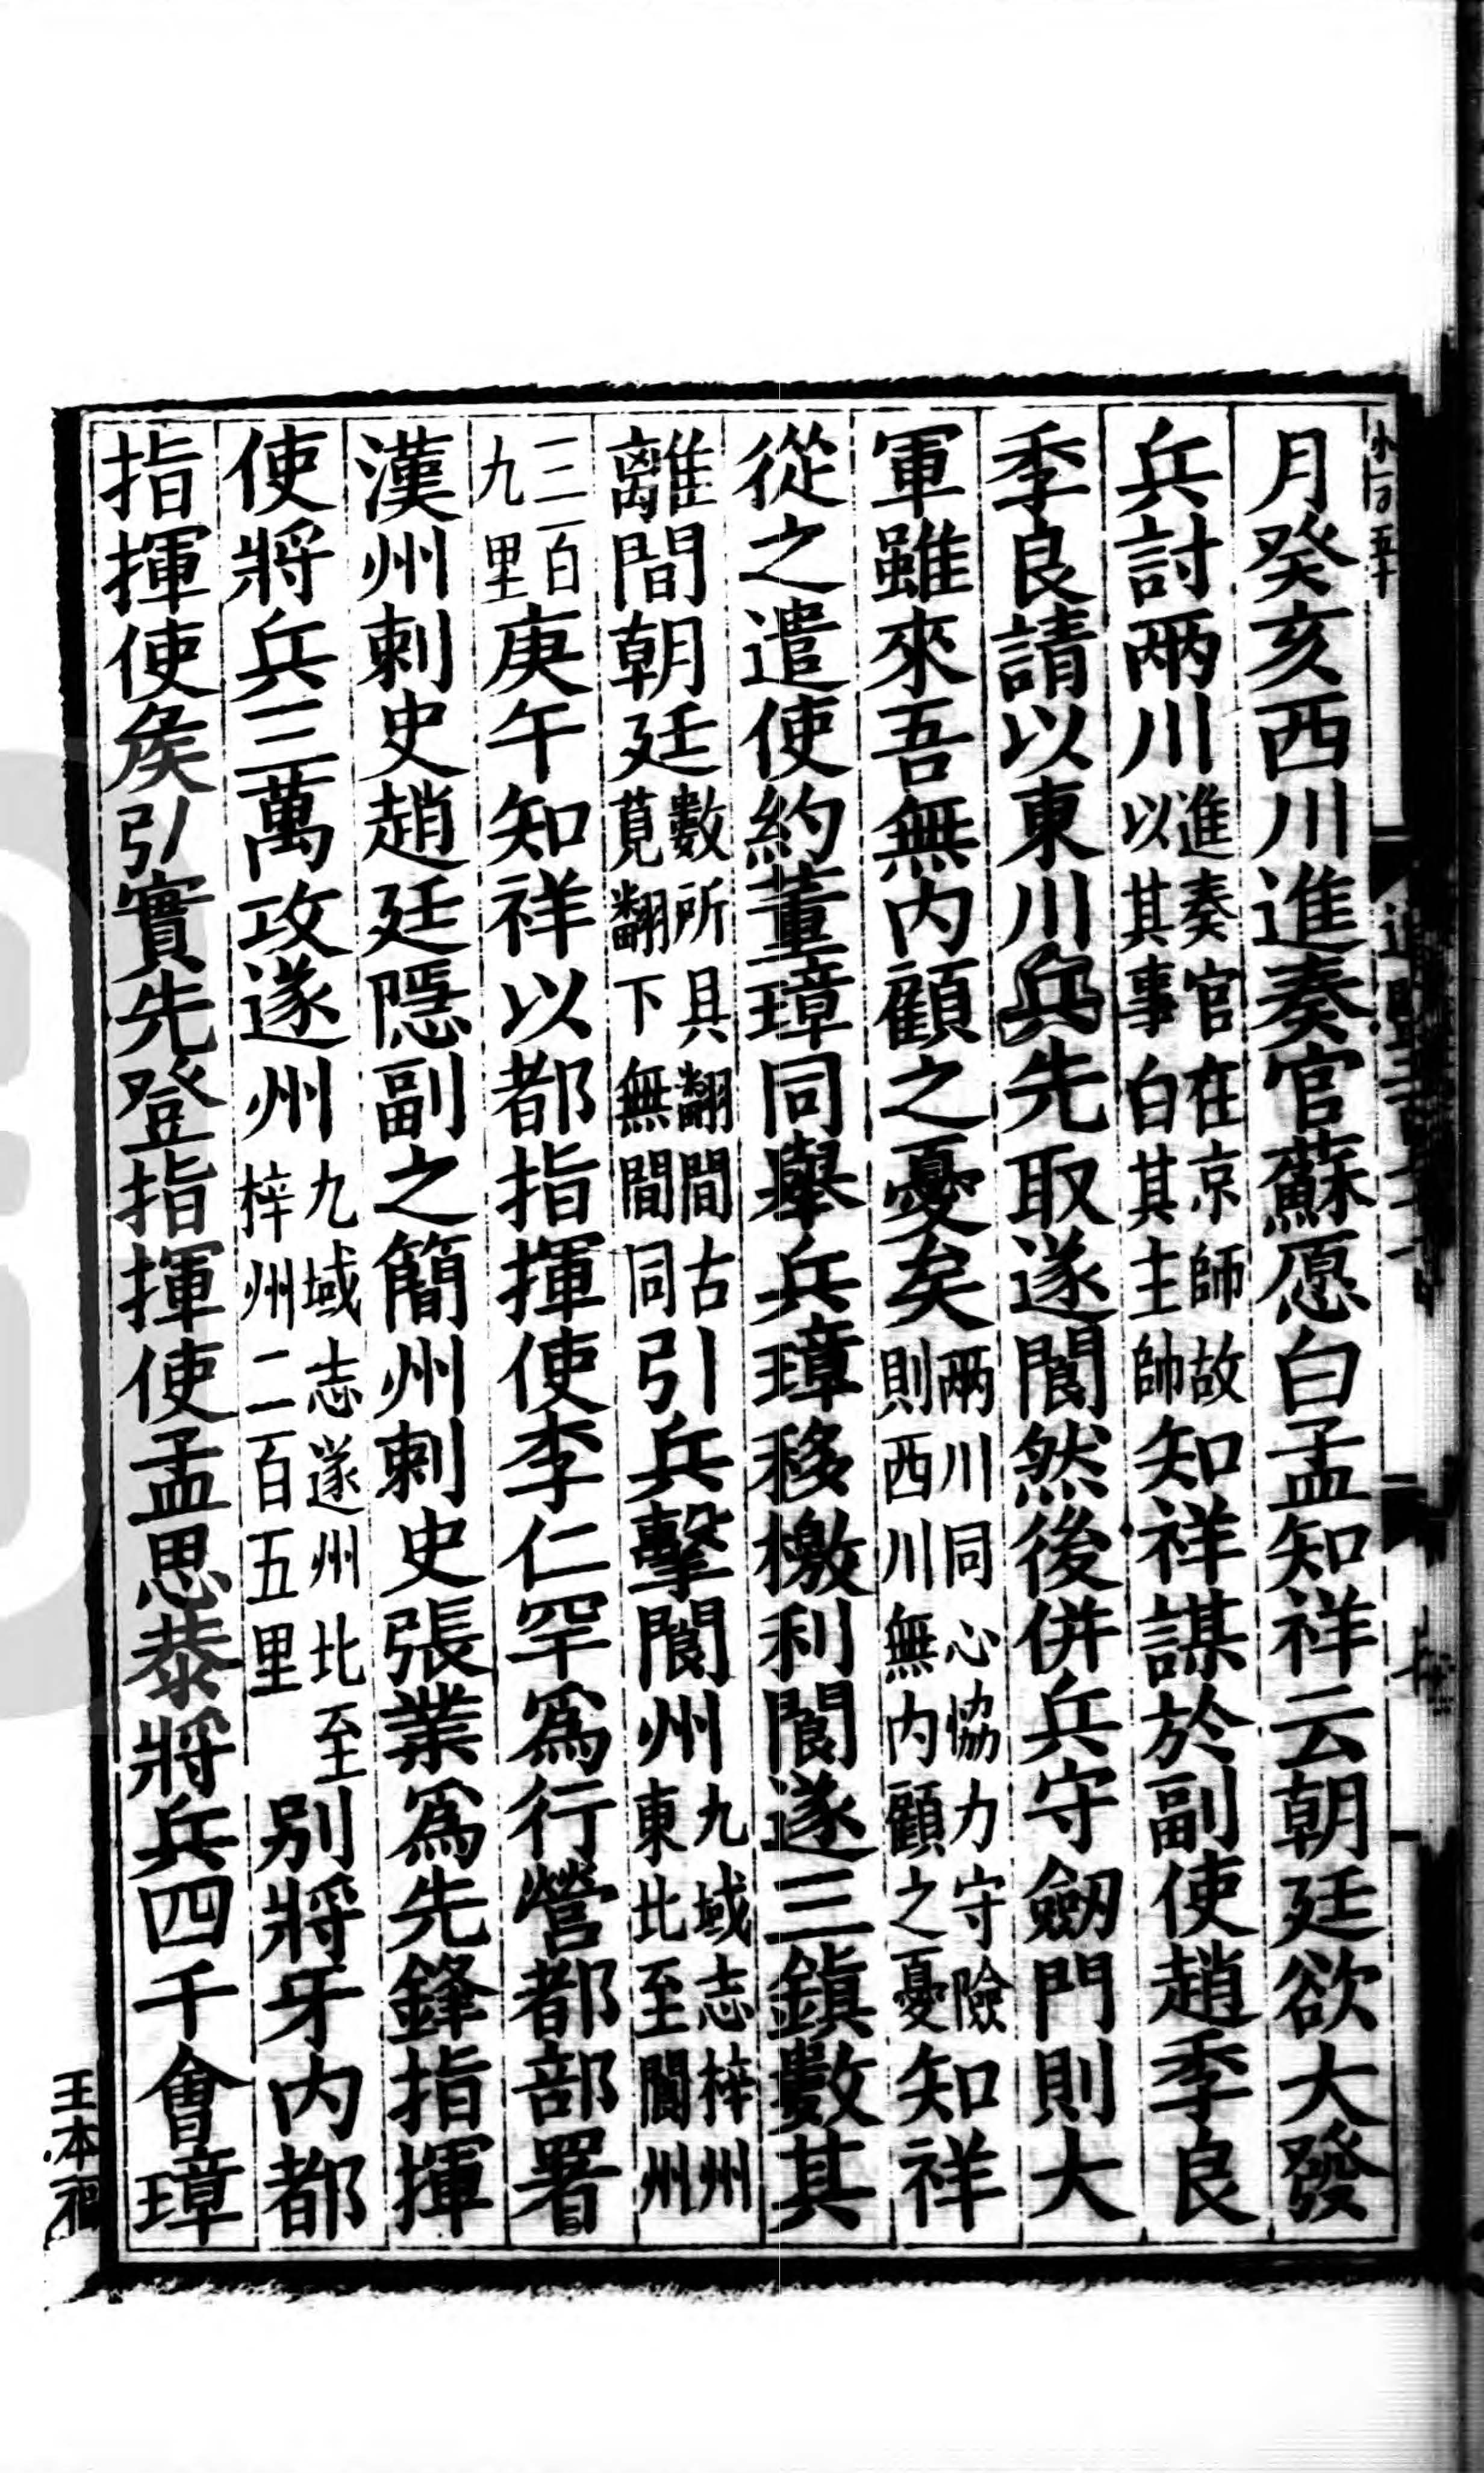 月癸亥西川進奏官蘇愿白孟知祥云朝廷欲大發
兵討兩川進奏官在京師故以其事白其主帥知祥謀於副使趙季良
季良請以東川兵先取遂閬然後併兵守劒門則大
軍雖來吾無内顧之憂矣兩川同心協力守險則西川無内顧之憂知祥
從之遣使約董璋同舉兵璋移檄利閬遂三鎮數其
離間朝廷數所具翻間古莧翻下無間同引兵擊閬州九域志梓州東北至閬州
三百九里庚午知祥以都指揮使李仁罕爲行營都部署
漢州刺史趙廷隱副之簡州刺史張業爲先鋒指揮
使將兵三萬攻遂州九域志遂州北至梓州二百五里别將牙内都
指揮使矦弘實先登指揮使孟思恭將兵四千會璋
王本